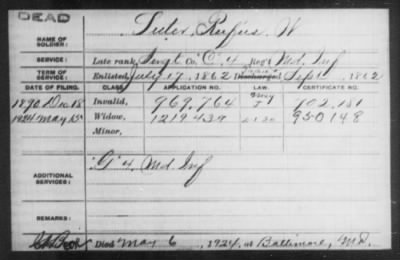 DEAD
NAME OF SOLDIER: Suter, Rufus W
SERVICE: Late rank, Sergt Co. C. 4 Reg't Md. Inf
TERM OF SERVICE: Enlisted July 17, 1862 Discharged Sept , 1862
DATE OF FILING. CLASS. APPLICATION NO. LAW. CERTIFICATE NO.
1890 Dec 18 Invalid, 969,764 902,181
1924 May 15 Widow, 1219439 950148
Minor,
ADDITIONAL SERVICES: "G" 4 Md. Inf
REMARKS:
Died May 6, 1924, at Baltimore, Md.